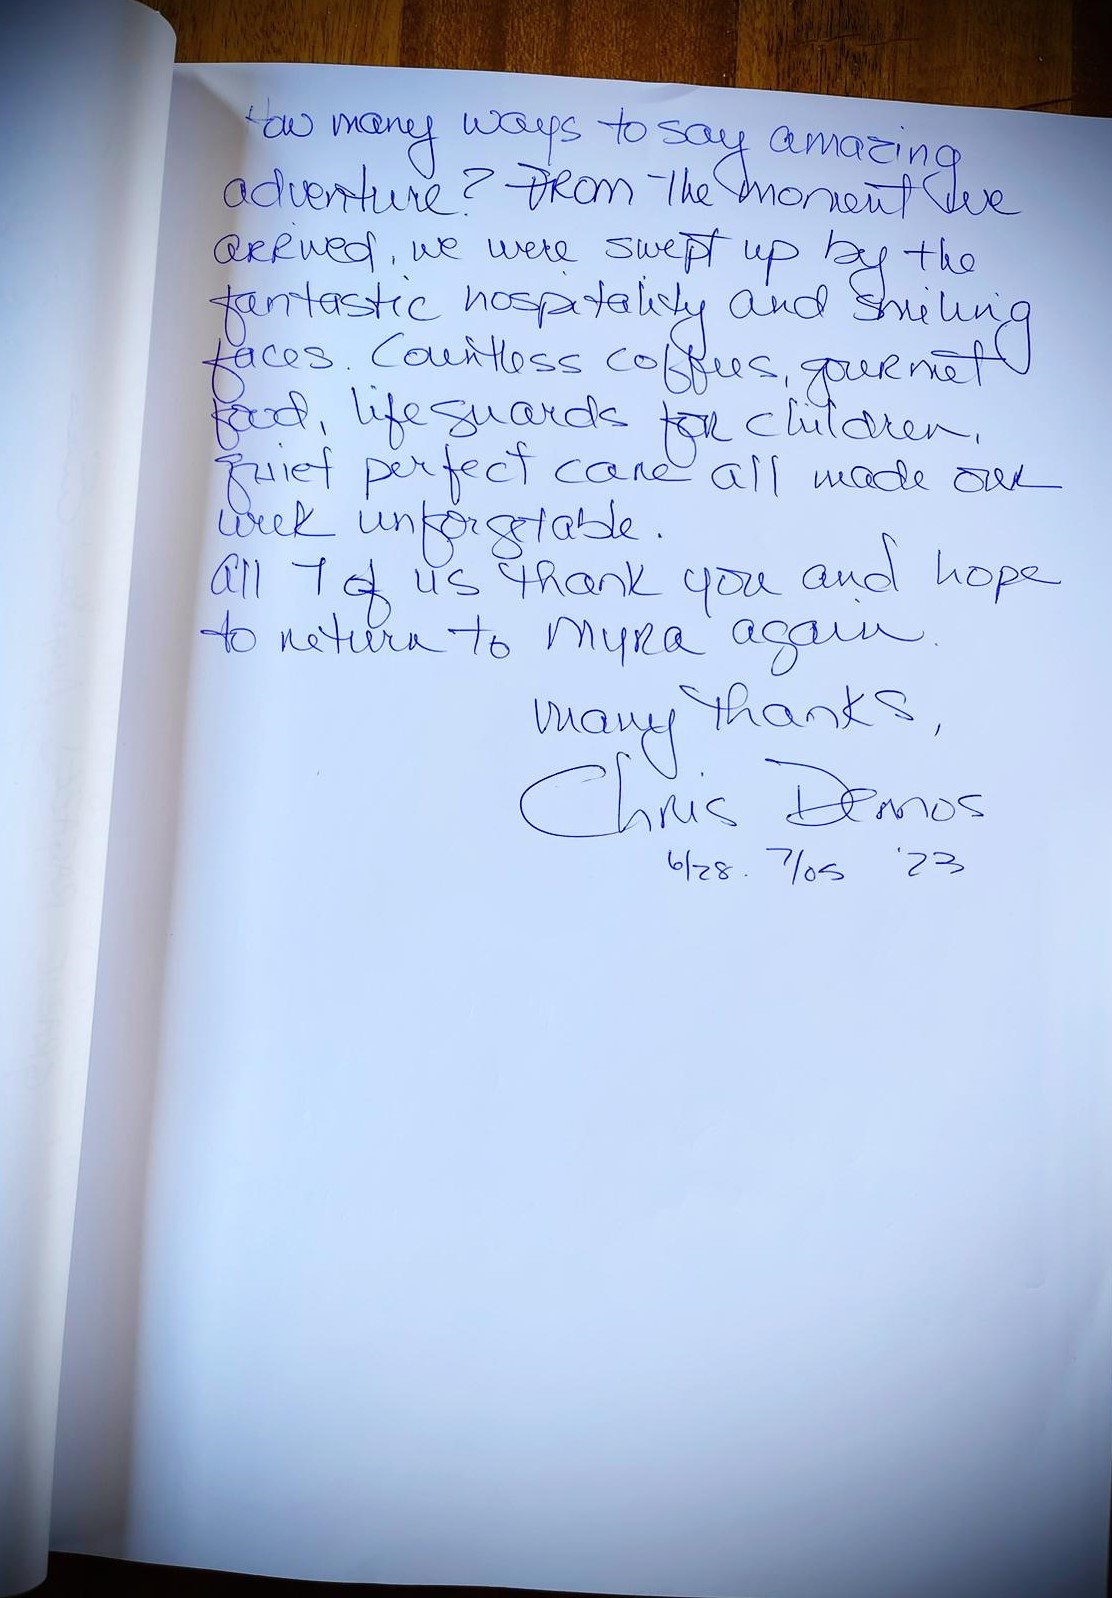 How many ways to say amazing
adventure? From the moment we
arrived, we were swept up by the
fantastic hospitality and smiling
faces. Countless coffees, gourmet
food, lifeguards for children,
quiet perfect care all made our
week unforgetable.
All 7 of us thank you and hope
to return to Myra again.
Many thanks,
Chris Demos
6/28. 7/05 '23